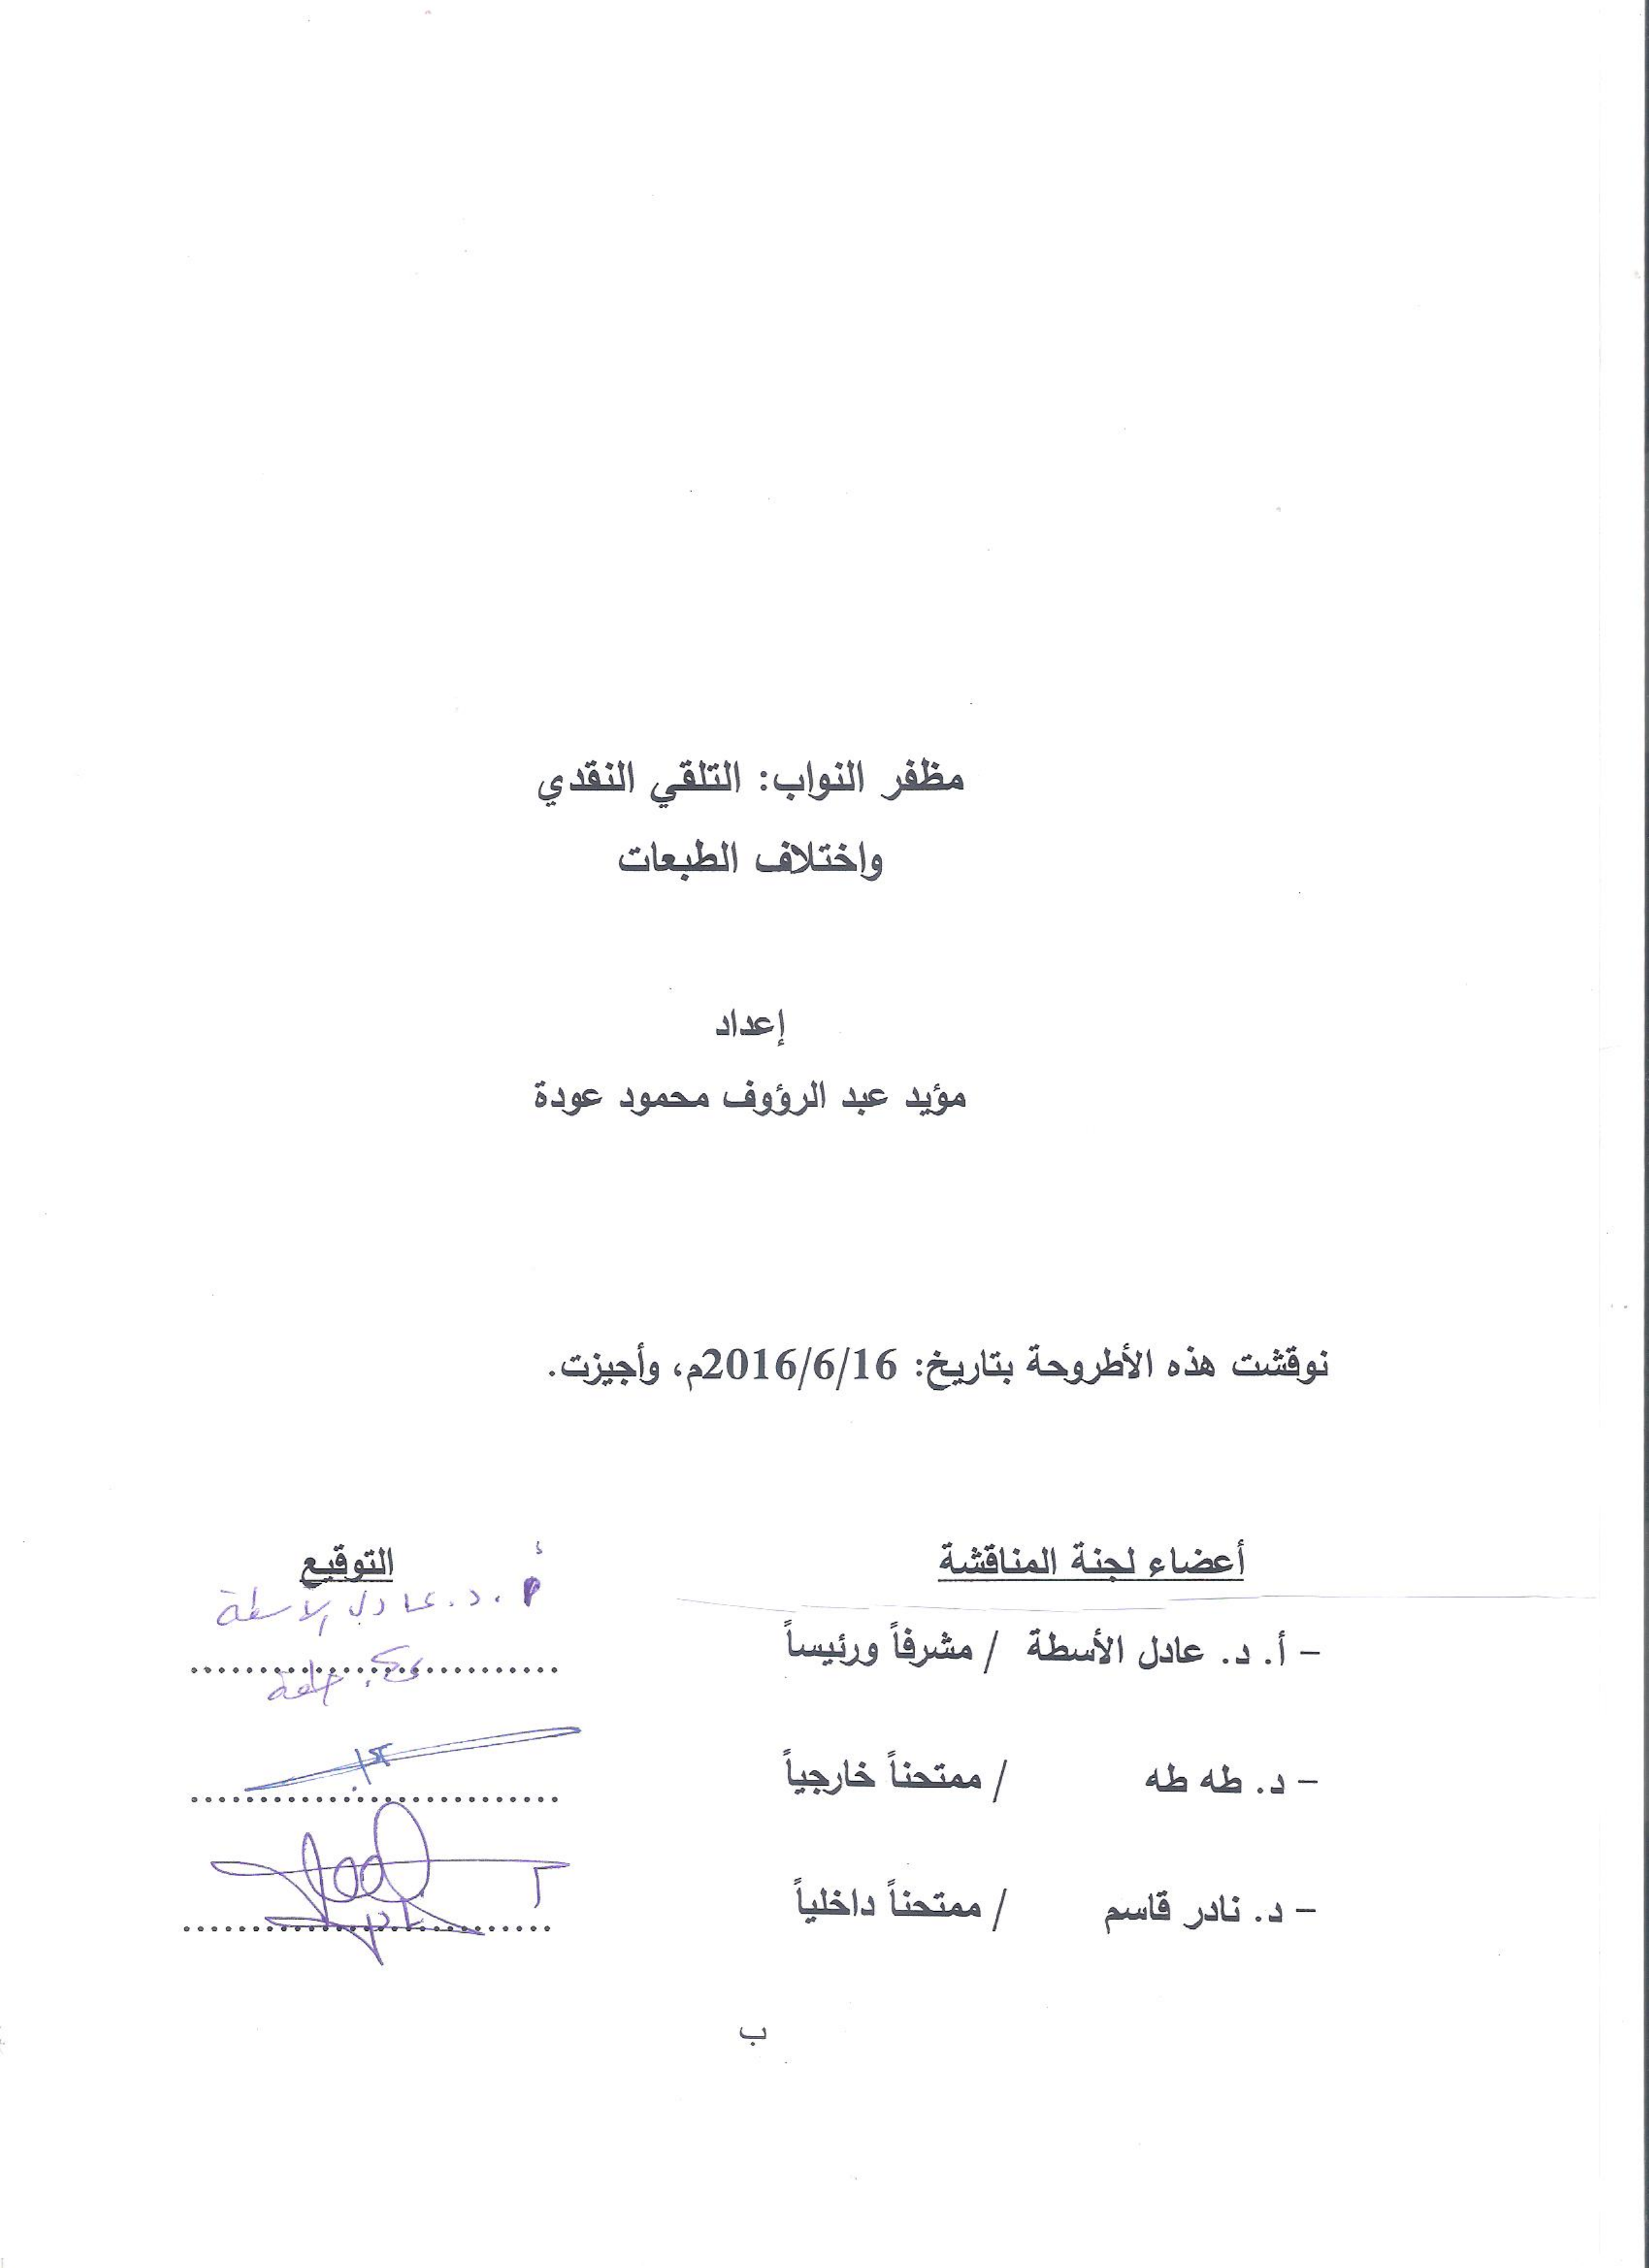 مظفر النواب: التلقي النقدي
واختلاف الطبعات
إعداد
مؤيد عبد الرؤوف محمود عودة
نوقشت هذه الأطروحة بتاريخ: 2016/6/16م، وأجيزت.
أعضاء لجنة المناقشة
التوقيع
أ.د. عادل الاسطة
– أ. د. عادل الأسطة / مشرفاً ورئيساً
............................
– د. طه طه / ممتحناً خارجياً
............................
– د. نادر قاسم / ممتحناً داخلياً
............................
ب